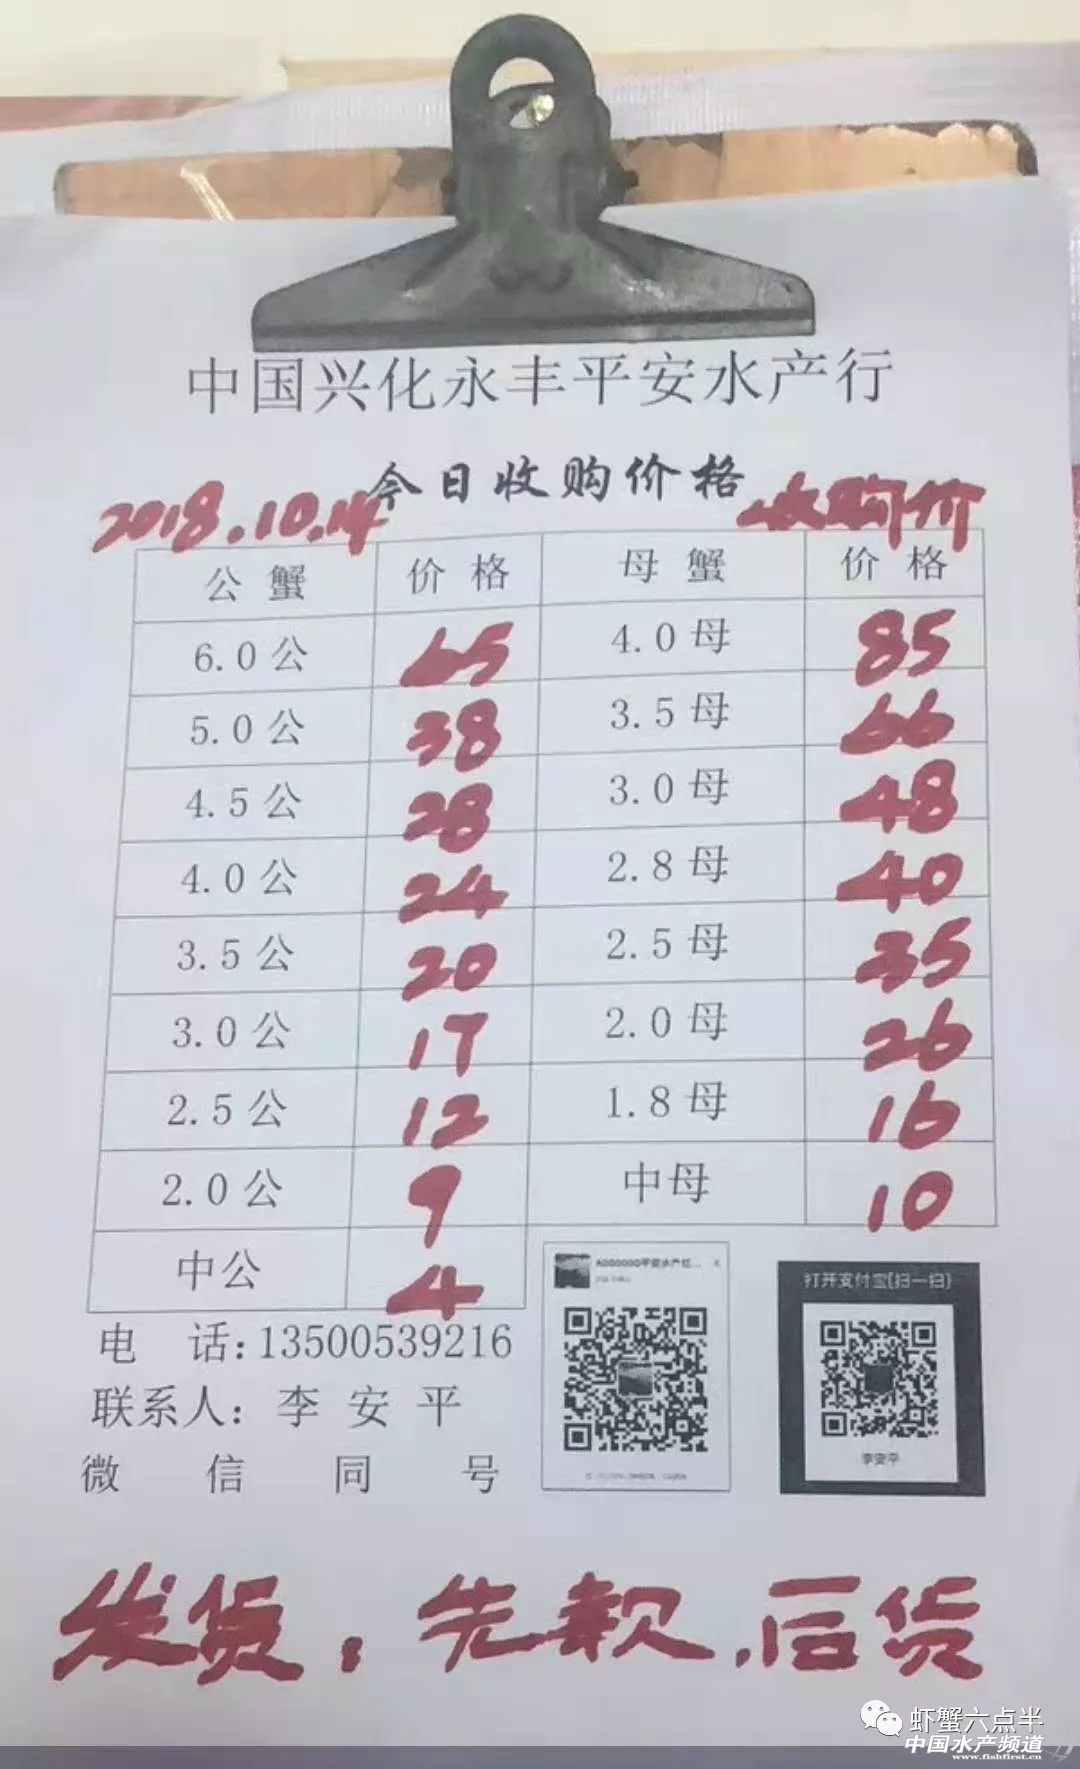 中国兴化永丰平安水产行
今日收购价格
2018.10.14 收购价
公蟹 价格 母蟹 价格
6.0公 65 4.0母 85
5.0公 38 3.5母 66
4.5公 28 3.0母 48
4.0公 24 2.8母 40
3.5公 20 2.5母 35
3.0公 17 2.0母 26
2.5公 12 1.8母 16
2.0公 9 中母 10
中公 4
电 话:13500539216
联系人: 李安平
微信同号
平安水产
打开支付宝[扫一扫]
李安平
发货:先款,后货
虾蟹六点半
中国水产频道
www.fishfirst.cn